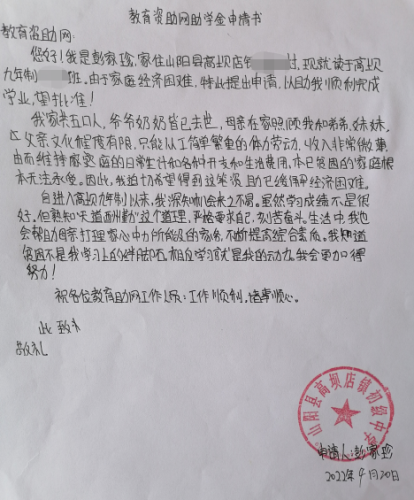 教育资助网助学金申请书
教育资助网:
您好!我是彭家珍,家住山阳县高坝店镇 过,现就读于高坝
九年制 班。由于家庭经济困难,特此提出申请,以助我顺利完成
学业,望批准!
我家共五口人,爷爷奶奶皆已去世,母亲在家照顾我和弟弟、妹妹,
父亲文化程度有限,只能从工简单繁重的体力劳动,收入非常微薄,
由而维持家庭的日常生计和各种开支和生活费用,本已贫困的家庭根
本无法承受。因此,我迫切希望得到这笔资助已缓解经济困难。
自进入高坝九年制以来,我深知机会来之不易。虽然学习成绩不是很
好,但熟知"天道酬勤"这个道理,严格要求自己,刻苦奋斗。生活中,我也
会帮助母亲打理家中力所能及的家务,不断提高综合素质。我知道
贫困不是我学习上的绊脚石,相反学习就是我的动力,我会更加得
努力!
祝各位教育助网工作人员:工作顺利,诸事顺心。
此致
敬礼
山阳县高坝店镇初级中学
申请人:彭家珍
2022年9月20日